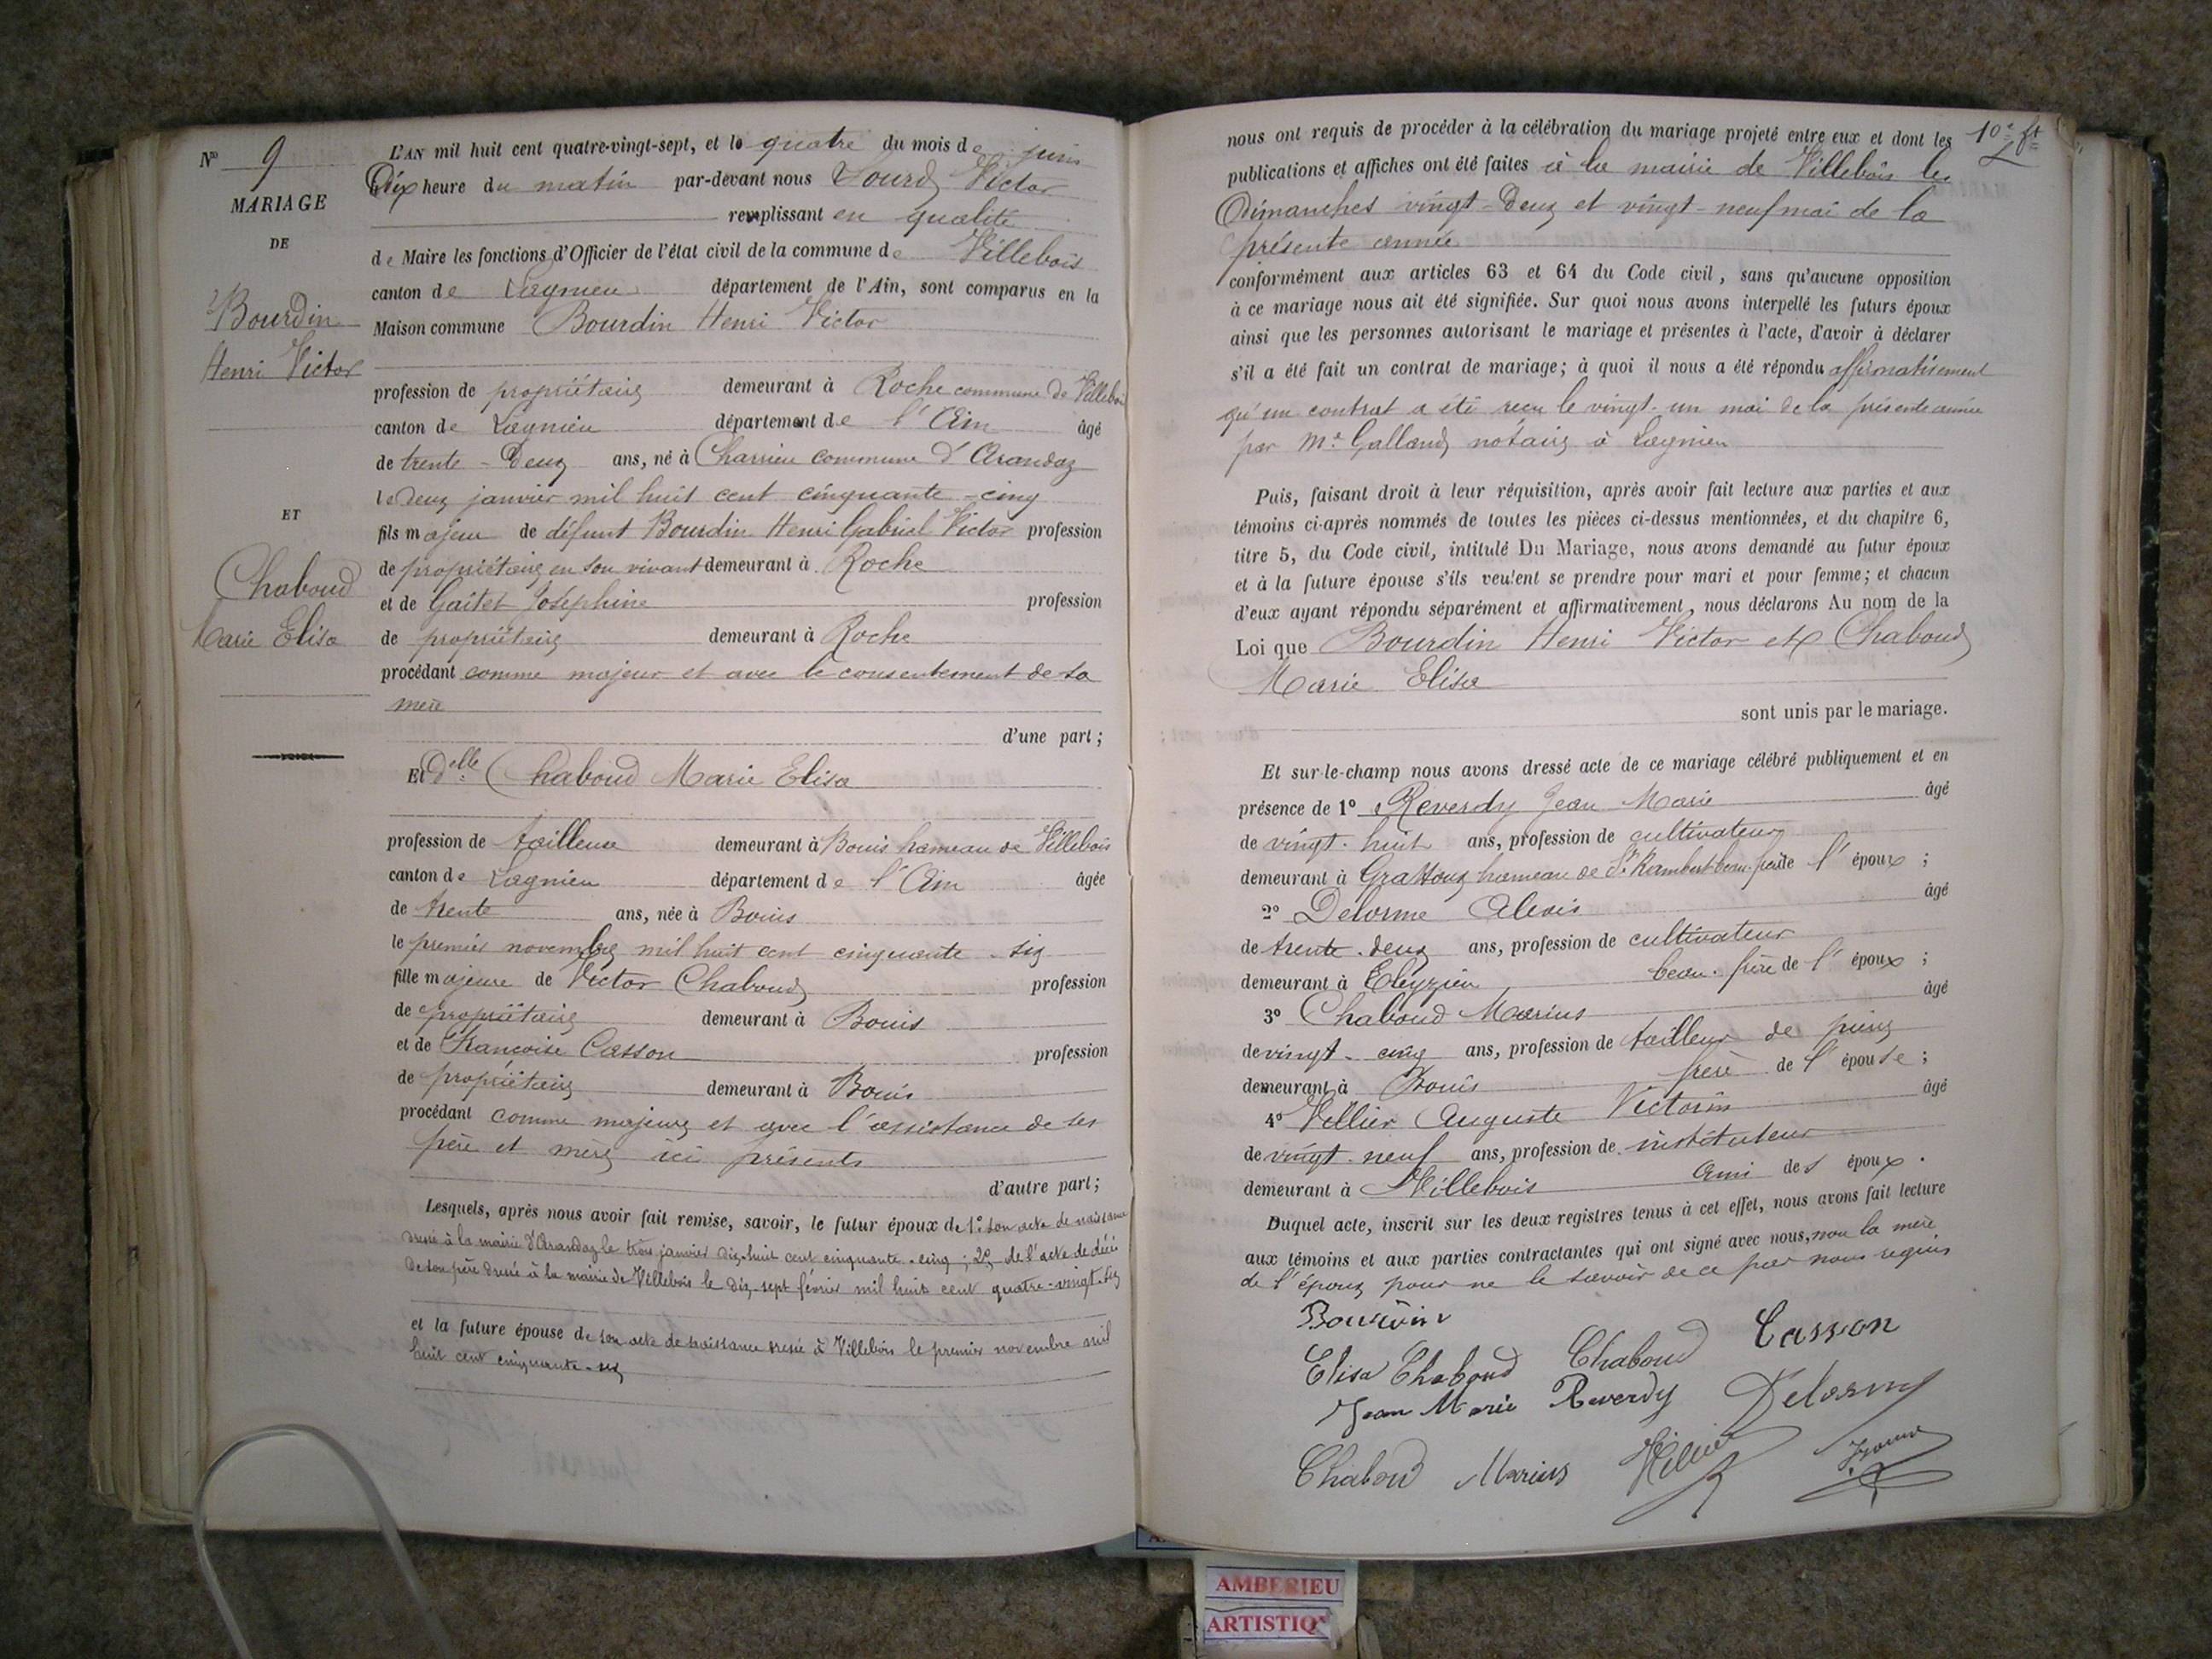 No 9
MARIAGE
DE
Bourdin
Henri Victor
ET
Chaboud
Marie Elisa
L'AN mil huit cent quatre-vingt-sept, et le quatre du mois de juin
Dix heure du matin par-devant nous Victor
remplissant en qualité
de Maire les fonctions d'Officier de l'état civil de la commune de Villebois
canton de Lagnieu département de l'Ain, sont comparus en la
Maison commune Bourdin Henri Victor
profession de propriétaire demeurant à Roche commune de Villebois
canton de Lagnieu département de l'Ain âgé
de trente-deux ans, né à Charrieu commune d'Arandaz
le deux janvier mil huit cent cinquante-cinq
fils majeur de défunt Bourdin Henri Gabriel Victor profession
de propriétaire en son vivant demeurant à Roche
et de Gaitet Joséphine profession
de propriétaire demeurant à Roche
procédant comme majeur et avec le consentement de sa
mère
d'une part;
Et Delle Chaboud Marie Elisa
profession de tailleuse demeurant à Bouis hameau de Villebois
canton de Lagnieu département de l'Ain âgée
de trente ans, née à Bouis
le premier novembre mil huit cent cinquante-six
fille majeure de Victor Chaboud profession
de propriétaire demeurant à Bouis
et de Françoise Casson profession
de propriétaire demeurant à Bouis
procédant comme majeure et avec l'assistance de ses
père et mère ici présents
d'autre part;
Lesquels, après nous avoir fait remise, savoir, le futur époux de 1º son acte de naissance
dressé à la mairie d'Arandaz le trois janvier dix-huit cent cinquante-cinq; 2º de l'acte de décès
de son père dressé à la mairie de Villebois le dix-sept février mil huit cent quatre-vingt-six
et la future épouse de son acte de naissance dressé à Villebois le premier novembre mil
huit cent cinquante-six
10e ft
nous ont requis de procéder à la célébration du mariage projeté entre eux et dont les
publications et affiches ont été faites à la mairie de Villebois les
Dimanches vingt-deux et vingt-neuf mai de la
présente année
conformément aux articles 63 et 64 du Code civil, sans qu'aucune opposition
à ce mariage nous ait été signifiée. Sur quoi nous avons interpellé les futurs époux
ainsi que les personnes autorisant le mariage et présentes à l'acte, d'avoir à déclarer
s'il a été fait un contrat de mariage; à quoi il nous a été répondu affirmativement
qu'un contrat a été reçu le vingt-un mai de la présente année
par Me Galland notaire à Lagnieu
Puis, faisant droit à leur réquisition, après avoir fait lecture aux parties et aux
témoins ci-après nommés de toutes les pièces ci-dessus mentionnées, et du chapitre 6,
titre 5, du Code civil, intitulé Du Mariage, nous avons demandé au futur époux
et à la future épouse s'ils veulent se prendre pour mari et pour femme; et chacun
d'eux ayant répondu séparément et affirmativement, nous déclarons Au nom de la
Loi que Bourdin Henri Victor et Chaboud
Marie Elisa
sont unis par le mariage.
Et sur-le-champ nous avons dressé acte de ce mariage célébré publiquement et en
présence de 1º Reverdy Jean Marie âgé
de vingt-huit ans, profession de cultivateur
demeurant à Grattoux hameau de St Rambert beau-frère de l'époux;
2º Delorme Alexis âgé
de trente-deux ans, profession de cultivateur
demeurant à Cleyzieu beau-frère de l'époux;
3º Chaboud Marius âgé
de vingt-cinq ans, profession de tailleur de pierre
demeurant à Bouis frère de l'épouse;
4º Vellier Auguste Victorin âgé
de vingt-neuf ans, profession de instituteur
demeurant à Villebois Ami des époux.
Duquel acte, inscrit sur les deux registres tenus à cet effet, nous avons fait lecture
aux témoins et aux parties contractantes qui ont signé avec nous, non la mère
de l'époux pour ne le savoir de ce par nous requis
Bourdin
Elisa Chaboud Chaboud Casson
Jean Marie Reverdy Delorme
Chaboud Marius
AMBERIEU
ARTISTIQ